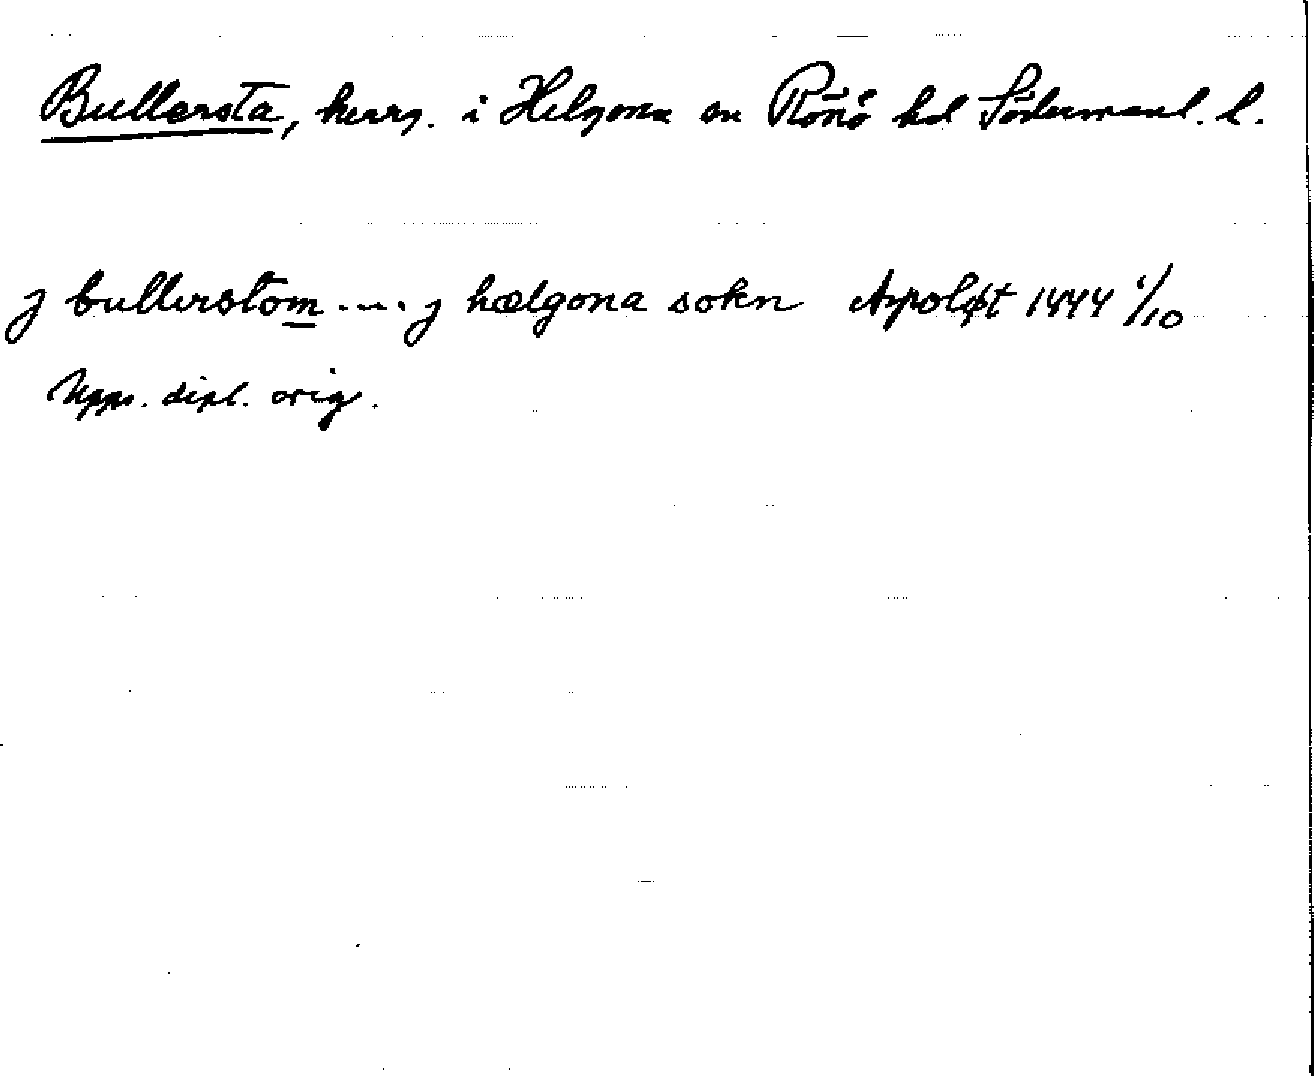 Bullersta, herrg. i Helgona sn Rönö hd Södermanl. l.
j bullerstom ... j hælgona sokn Arpoløt 1444 1/10
Upps. dipl. orig.